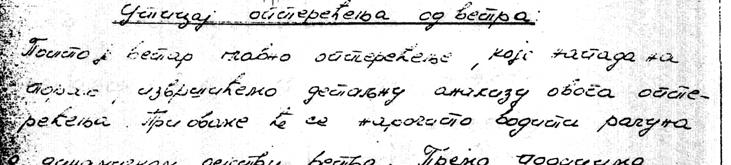 Утицај оптерећења од ветра:
Пошто је ветар главно оптерећење, које напада на
торањ, извршићемо детаљну анализу овога опте-
рећења. При овоме ће се нарочито водити рачуна
о динамичком дејству ветра. Према подацима